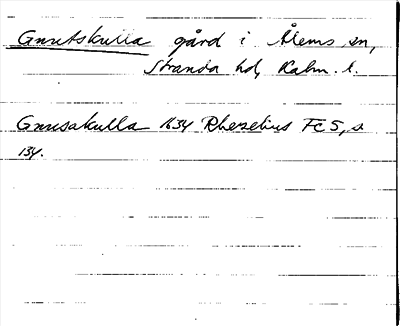 Gnutskulla gård i Ålems sn,
Stranda hd, Kalm. l.
Gnusakulla 1634 Rhezelius Fc5, s.
134.